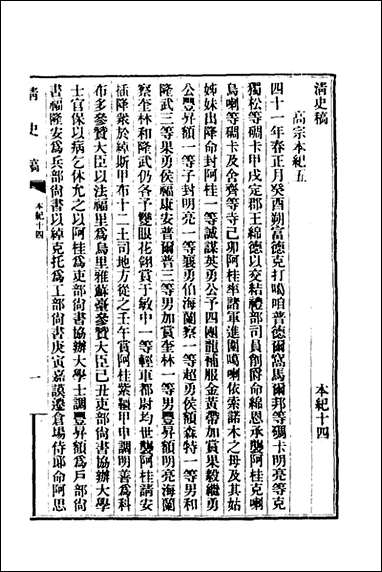 清史稿 本紀十四
高宗本紀五
四十一年春正月癸酉朔富德克打噶咱普德爾窩馬爾邦等碉卡明亮等克
獨松等碉卡甲戌定郡王綿德以交結禮部司員削爵命綿恩承襲阿桂克喇
烏喇等碉卡及舍齊等寺己卯阿桂率諸軍進圍噶喇依索諾木之母及其姑
姊妹出降命封阿桂一等誠謀英勇公予四團龍補服金黃帶加賞果毅繼勇
公豐昇額一等子封明亮一等襄勇伯海蘭察一等超勇侯額森特一等男和
隆武三等果勇侯福康安普爾普三等男加賞奎林一等男豐昇額明亮海蘭
察奎林和隆武仍各予雙眼花翎賞于敏中一等輕車都尉均世襲阿桂請安
插降衆於綽斯甲布十二土司地方從之壬午賞阿桂紫韁甲申調明善爲科
布多參贊大臣以法福里爲烏里雅蘇臺參贊大臣己丑吏部尚書協辦大學
士官保以病乞休允之以阿桂爲吏部尚書協辦大學士調豐昇額爲戶部尚
書福隆安爲兵部尚書以綽克托爲工部尚書庚寅嘉謨遷倉場侍郎命阿思
清史稿 本紀十四 一